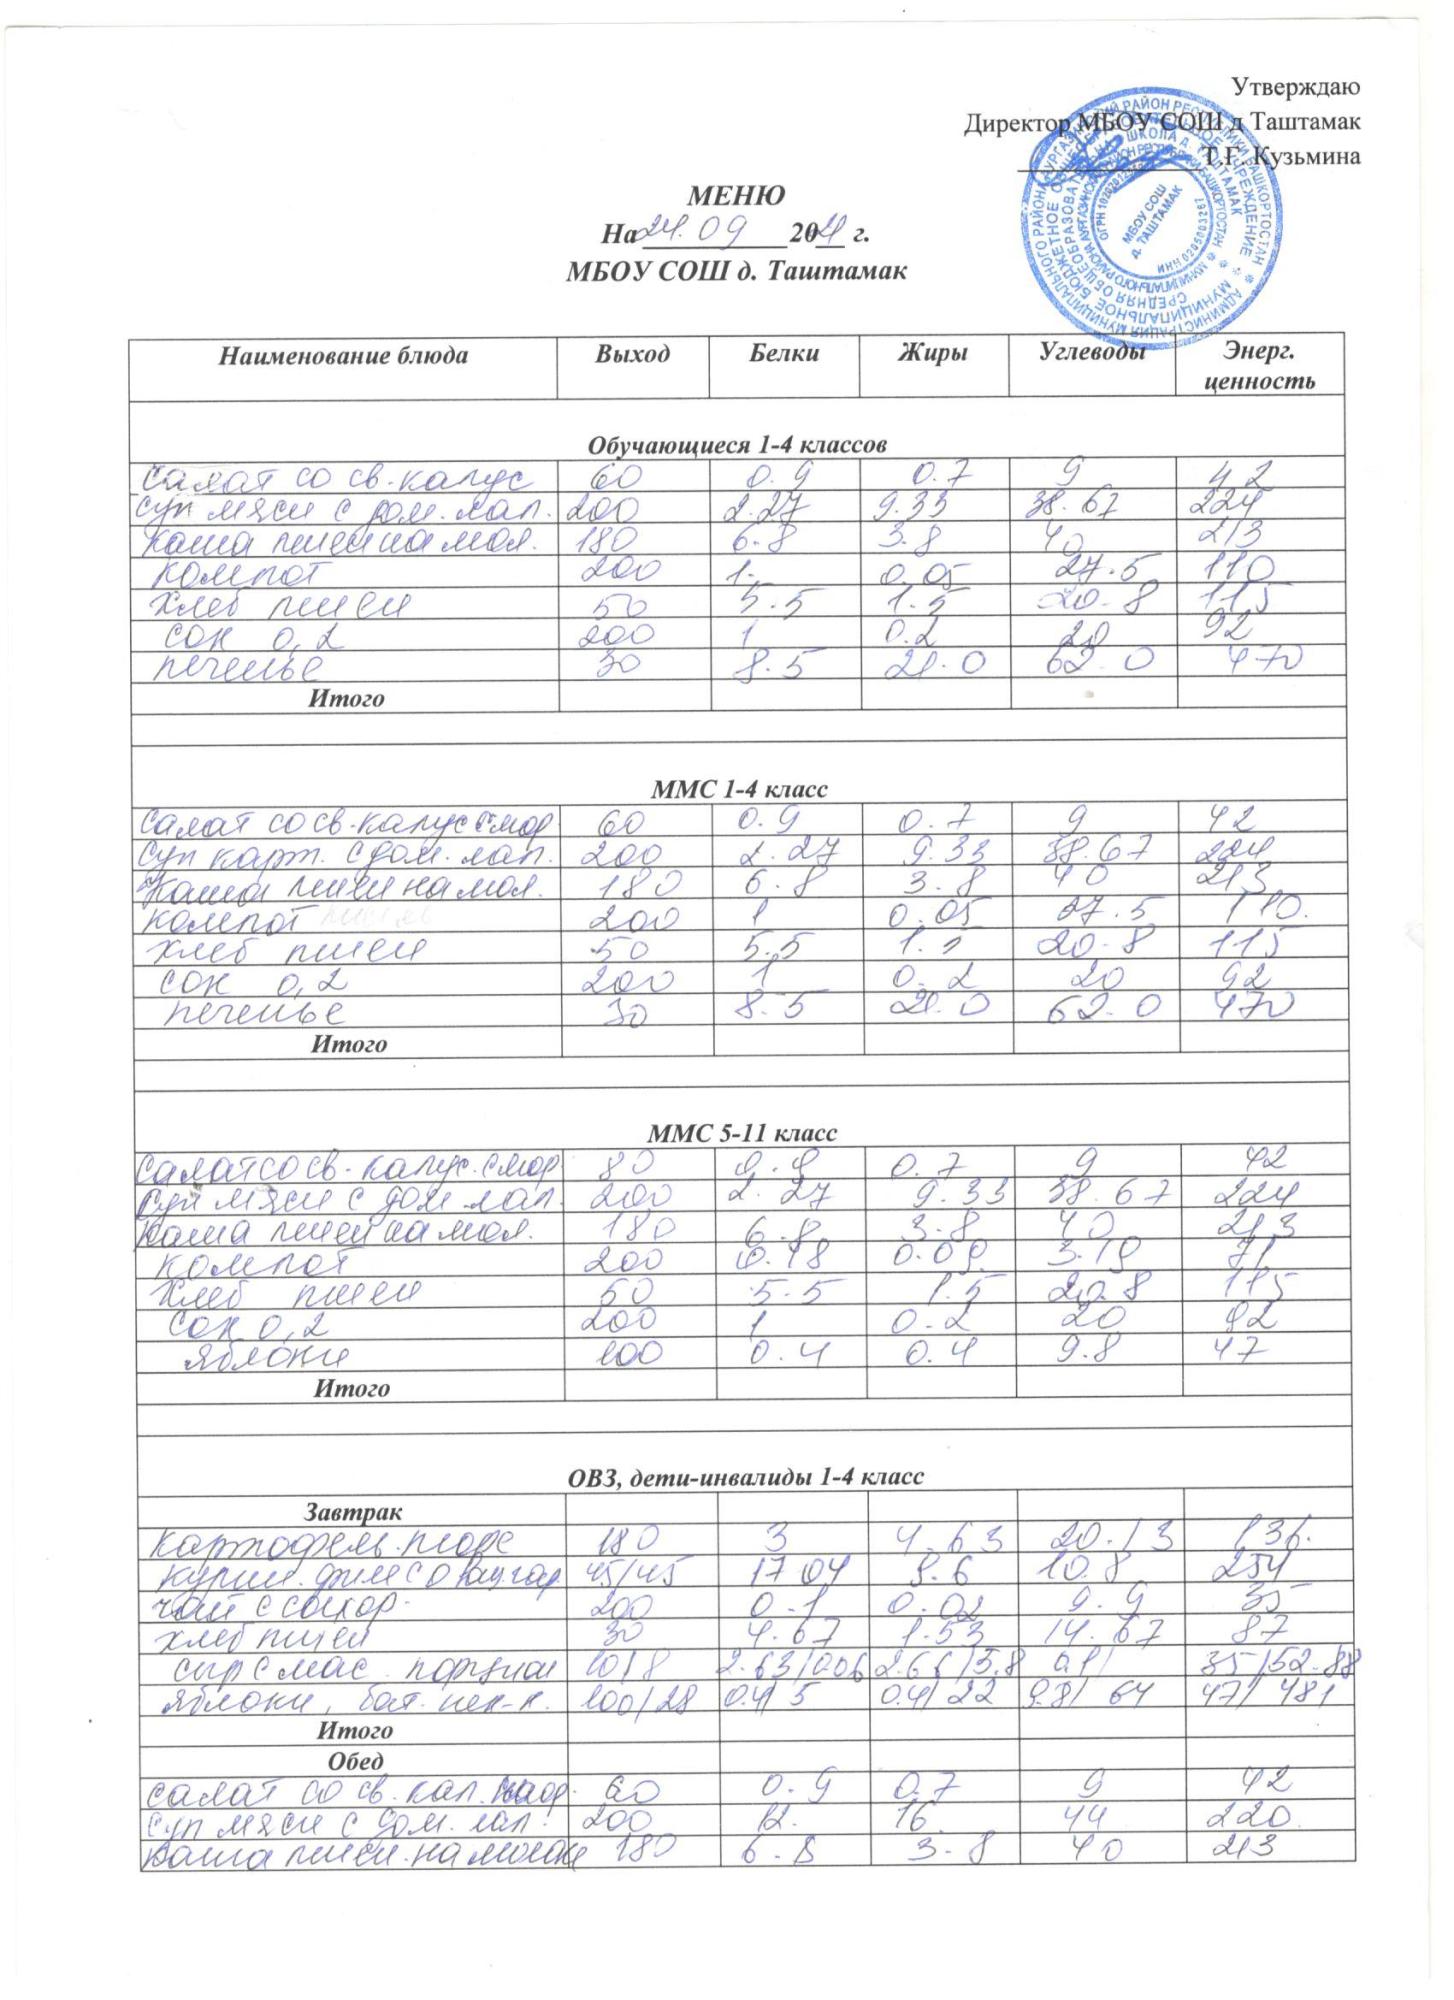 Утверждаю
Директор МБОУ СОШ д Таштамак
Т.Г. Кузьмина
МБОУ СОШ д. ТАШТАМАК
ИНН 0205003267
МЕНЮ
На 24.09 2021 г.
МБОУ СОШ д. Таштамак
Наименование блюда Выход Белки Жиры Углеводы Энерг. ценность
Обучающиеся 1-4 классов
Салат со св. капус 60 0.9 0.7 9 42
Суп мясн с дом. лап. 200 2.27 9.33 38.67 224
Каша пшен на мол. 180 6.8 3.8 40 213
Компот 200 1. 0.05 27.5 110
Хлеб пшен 50 5.5 1.5 20.8 115
Сок 0,2 200 1 0.2 20 92
печенье 30 8.5 21.0 62.0 470
Итого
ММС 1-4 класс
Салат со св. капус с мор 60 0.9 0.7 9 42
Суп карт. с дом. лап. 200 2.27 9.33 38.67 224
Каша пшен на мол. 180 6.8 3.8 40 213
компот 200 1 0.05 27.5 110.
Хлеб пшен 50 5.5 1.5 20.8 115
Сок 0,2 200 1 0.2 20 92
печенье 30 8.5 21.0 62.0 470
Итого
ММС 5-11 класс
Салат со св. капус. с мор 80 0.9 0.7 9 42
Суп мясн с дом. лап. 200 2.27 9.33 38.67 224
Каша пшен на мол. 180 6.8 3.8 40 213
Компот 200 0.18 0.09. 3.19 71
Хлеб пшен 50 5.5 1.5 20.8 115
Сок 0,2 200 1 0.2 20 92
яблоки 100 0.4 0.4 9.8 47
Итого
ОВЗ, дети-инвалиды 1-4 класс
Завтрак
Картофель. пюре 180 3 4.63 20.13 136.
Курин. филе 45/45 17 04 9.6 10.8 254
Чай с сахор. 200 0.1 0.02 9.9 35
Хлеб пшен 30 4.67 1.53 14.67 87
Сыр с мас. порцион 10/8 2.63/006 2.66/5.8 0.1/ 35/52.88
яблоки, бат. 100/28 0.4/5 0.4/22 9.8/ 64 47/ 481
Итого
Обед
Салат со св. кап. 60 0.9 0.7 9 42
Суп мясн с дом. лап. 200 12. 16. 44 220.
Каша пшен. на молоке 180 6.8 3.8 40 213